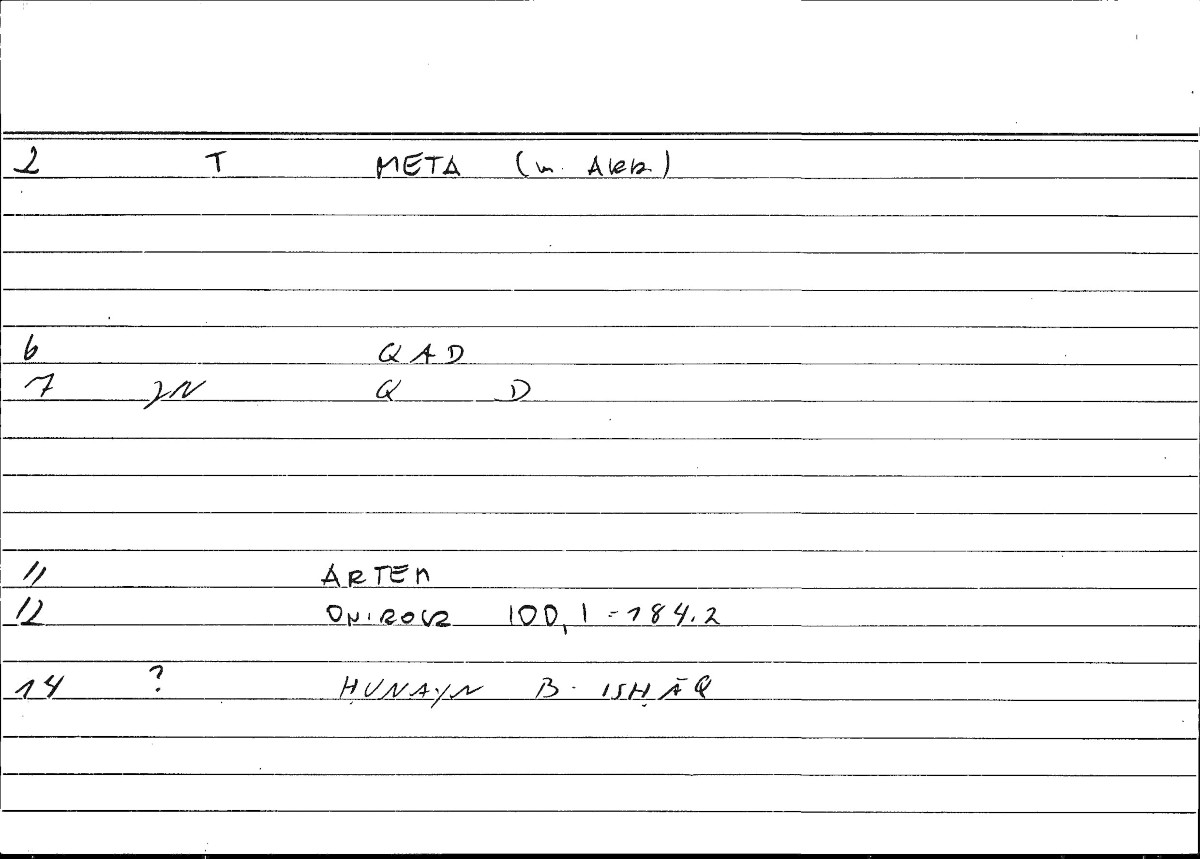 2 T META (w. Akk.)
6 QAD
7 JN Q D
11 ARTEM
12 ONIROCR 100,1-184.2
14 ? ḤUNAYN B. ISḤĀQ